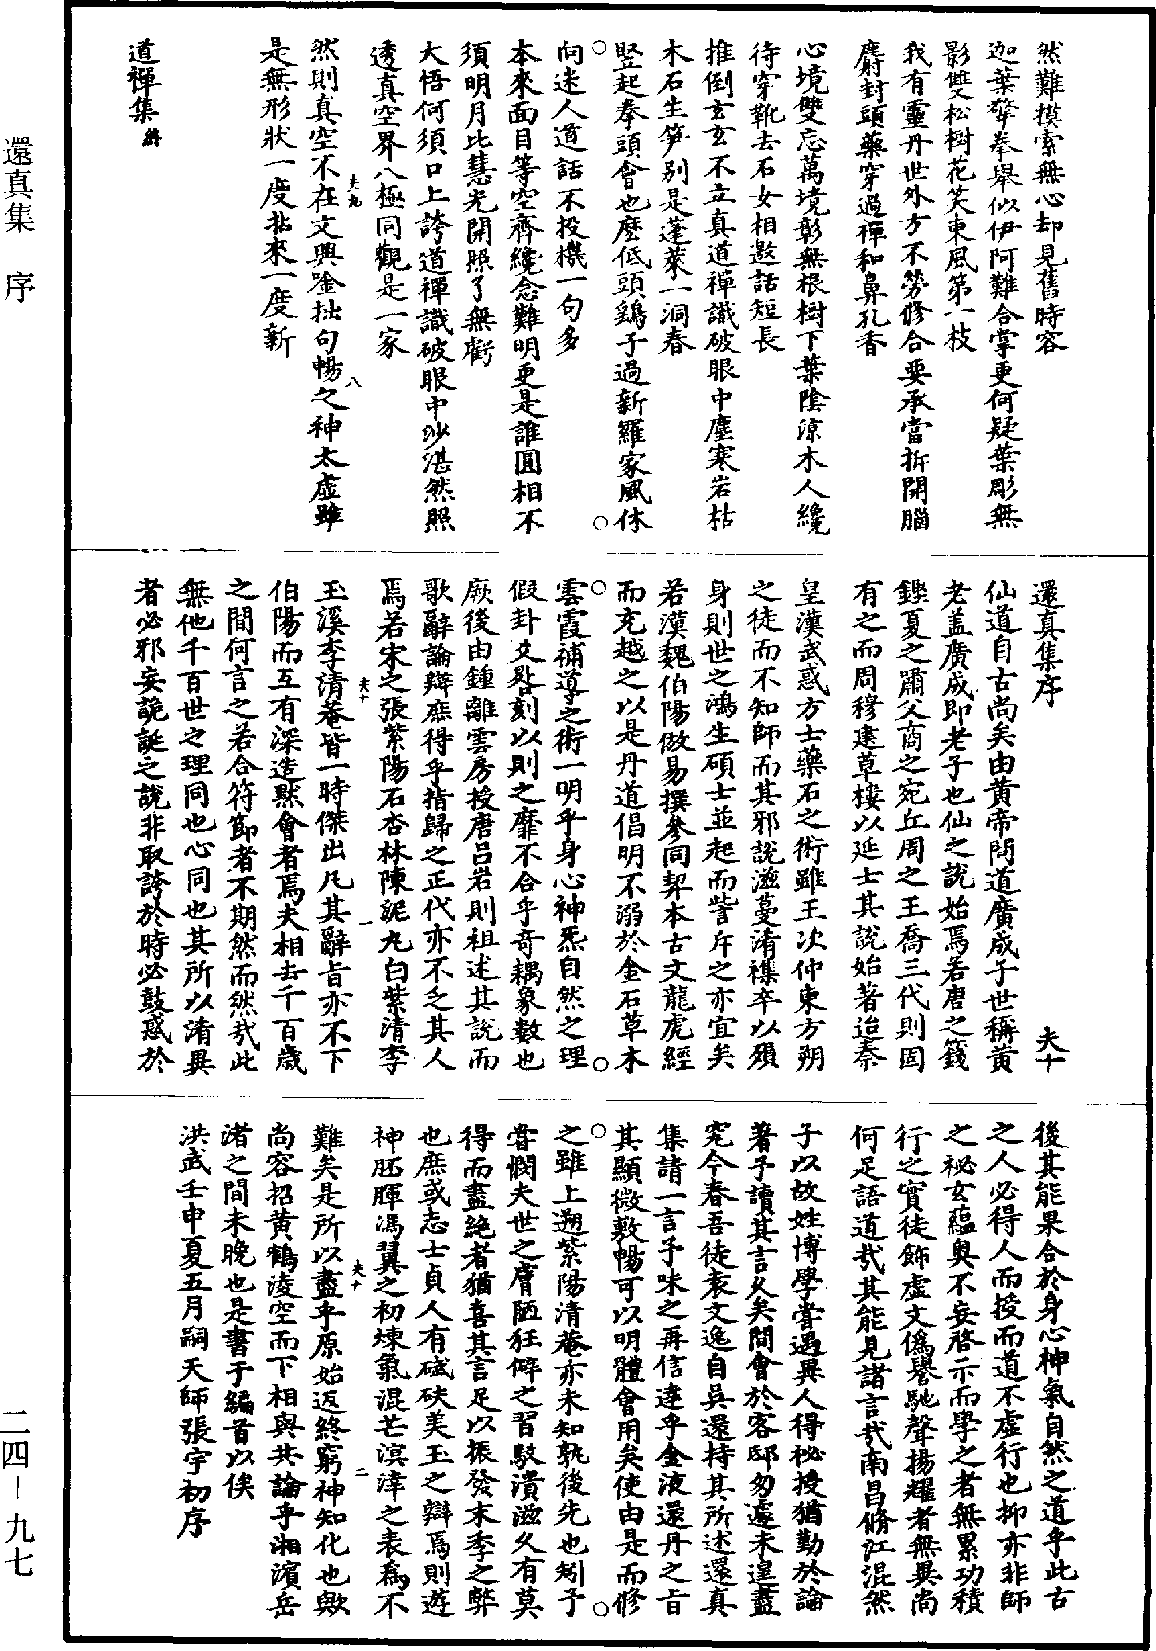 然難摸索無心却見舊時容
迦葉擎拳舉似伊阿難合掌更何疑葉彫無
影雙松樹花笑東風第一枝
我有靈丹世外方不勞修合要承當拆開腦
麝封頭藥穿過禪和鼻孔香
心境雙忘萬境彰無根樹下葉陰涼木人纔
待穿靴去石女相邀話短長
推倒玄玄不立真道禪識破眼中塵寒岩枯
木石生笋別是蓬萊一洞春
竪起拳頭會也麼低頭鷂子過新羅家風休
向迷人道話不投機一句多
本來面目等空齊纔念難明更是誰圓相不
須明月比慧光開照了無虧
大悟何須口上誇道禪識破眼中沙湛然照
透真空界八極同觀是一家
然則真空不在文興唫拙句暢之神太虛雖
是無形狀一度拈來一度新
道禪集
還真集序
夫十
仙道自古尚矣由黃帝問道廣成子世稱黃
老蓋廣成即老子也仙之說始焉若唐之籛
鏗夏之嘯父商之宛丘周之王喬三代則固
有之而周穆建草樓以延士其說始著迨秦
皇漢武惑方士藥石之術雖王次仲東方朔
之徒而不知師而其邪說滋蔓淆襍卒以殞
身則世之鴻生碩士並起而訾斥之亦宜矣
若漢魏伯陽倣易撰參同契本古文龍虎經
而充越之以是丹道倡明不溺於金石草木
雲霞補導之術一明乎身心神炁自然之理
假卦爻晷刻以則之靡不合乎奇耦象數也
厥後由鍾離雲房授唐呂岩則祖述其說而
歌辭論辯庶得乎指歸之正代亦不乏其人
焉若宋之張紫陽石杏林陳泥丸白紫清李
玉溪李清菴皆一時傑出凡其辭旨亦不下
伯陽而互有深造默會者焉夫相去千百歲
之間何言之若合符節者不期然而然哉此
無他千百世之理同也心同也其所以淆異
者必邪妄詭誕之說非取誇於時必鼓惑於
後其能果合於身心神氣自然之道乎此古
之人必得人而授而道不虛行也抑亦非師
之秘玄蘊奧不妄啓示而學之者無累功積
行之實徒飾虛文僞譽馳聲揚耀者無異尚
何足語道哉其能見諸言哉南昌脩江混然
子以故姓博學嘗遇異人得秘授猶勤於論
著予讀其言久矣間會於客邸匆遽未遑盡
究今春吾徒袁文逸自吳還持其所述還真
集請一言予味之再信達乎金液還丹之旨
其顯微敷暢可以明體會用矣使由是而修
之雖上遡紫陽清菴亦未知孰後先也矧予
嘗憫夫世之膚陋狂僻之習駁潰滋久有莫
得而盡絶者猶喜其言足以振發末季之弊
也庶或志士貞人有碔砆美玉之辯焉則遊
神胚暉馮翼之初煉氣混芒溟涬之表爲不
難矣是所以盡乎原始返終窮神知化也歟
尚容招黃鶴凌空而下相與共論乎湘濱岳
渚之間未晚也是書于編首以俟
洪武壬申夏五月嗣天師張宇初序
還真集 序
二四－九七